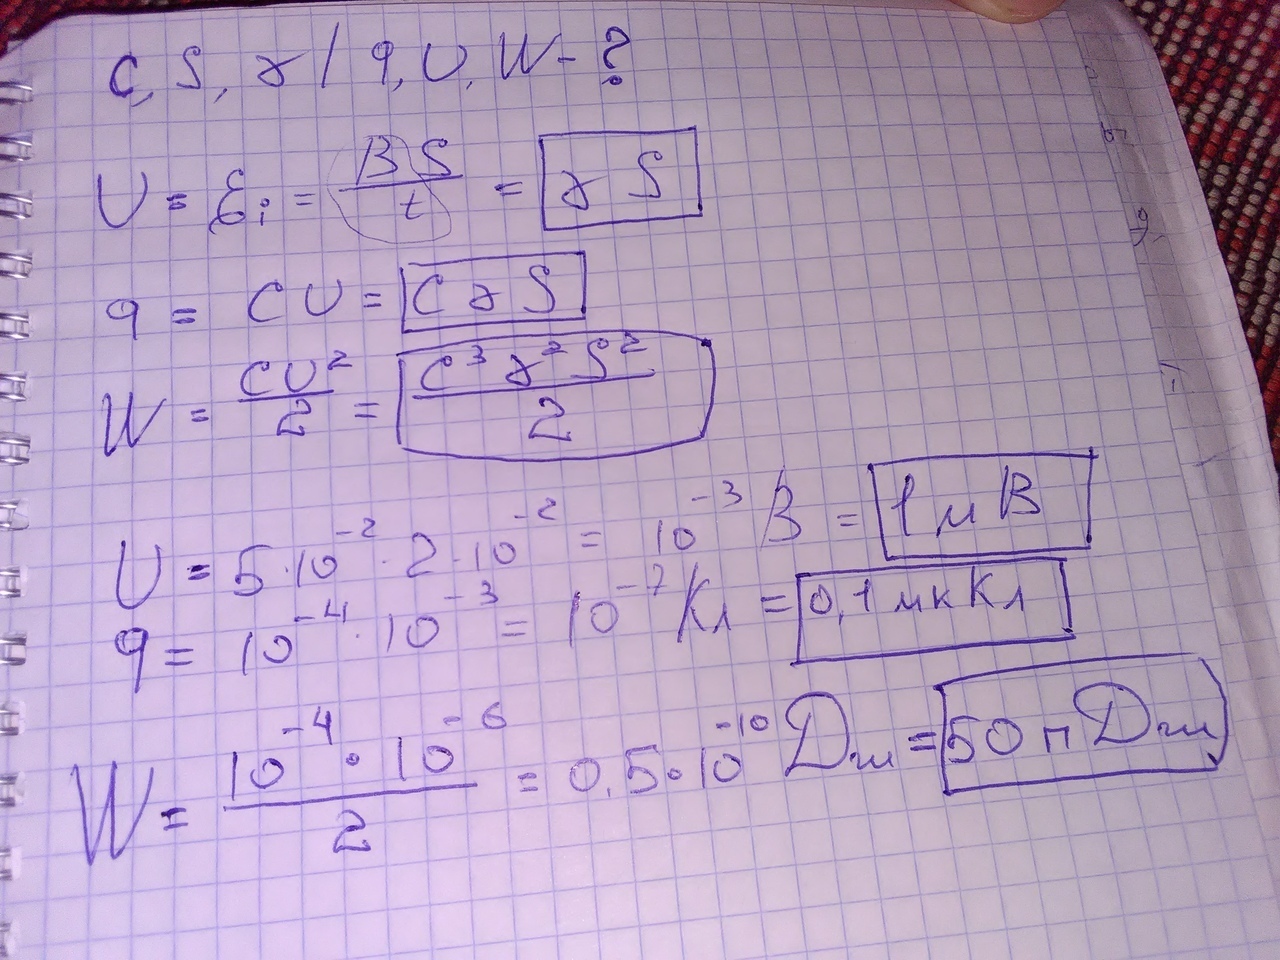 C, S, γ / q, U, W - ?
U = Ɛi = BS/t = γ S
q = CU = C γ S
W = CU²/2 = C³ γ² S²/2
U = 5·10⁻² · 2·10⁻² = 10⁻³ В = 1 мВ
q = 10⁻⁴ · 10⁻³ = 10⁻⁷ Кл = 0,1 мкКл
W = 10⁻⁴ · 10⁻⁶/2 = 0,5·10⁻¹⁰ Дж = 50 пДж